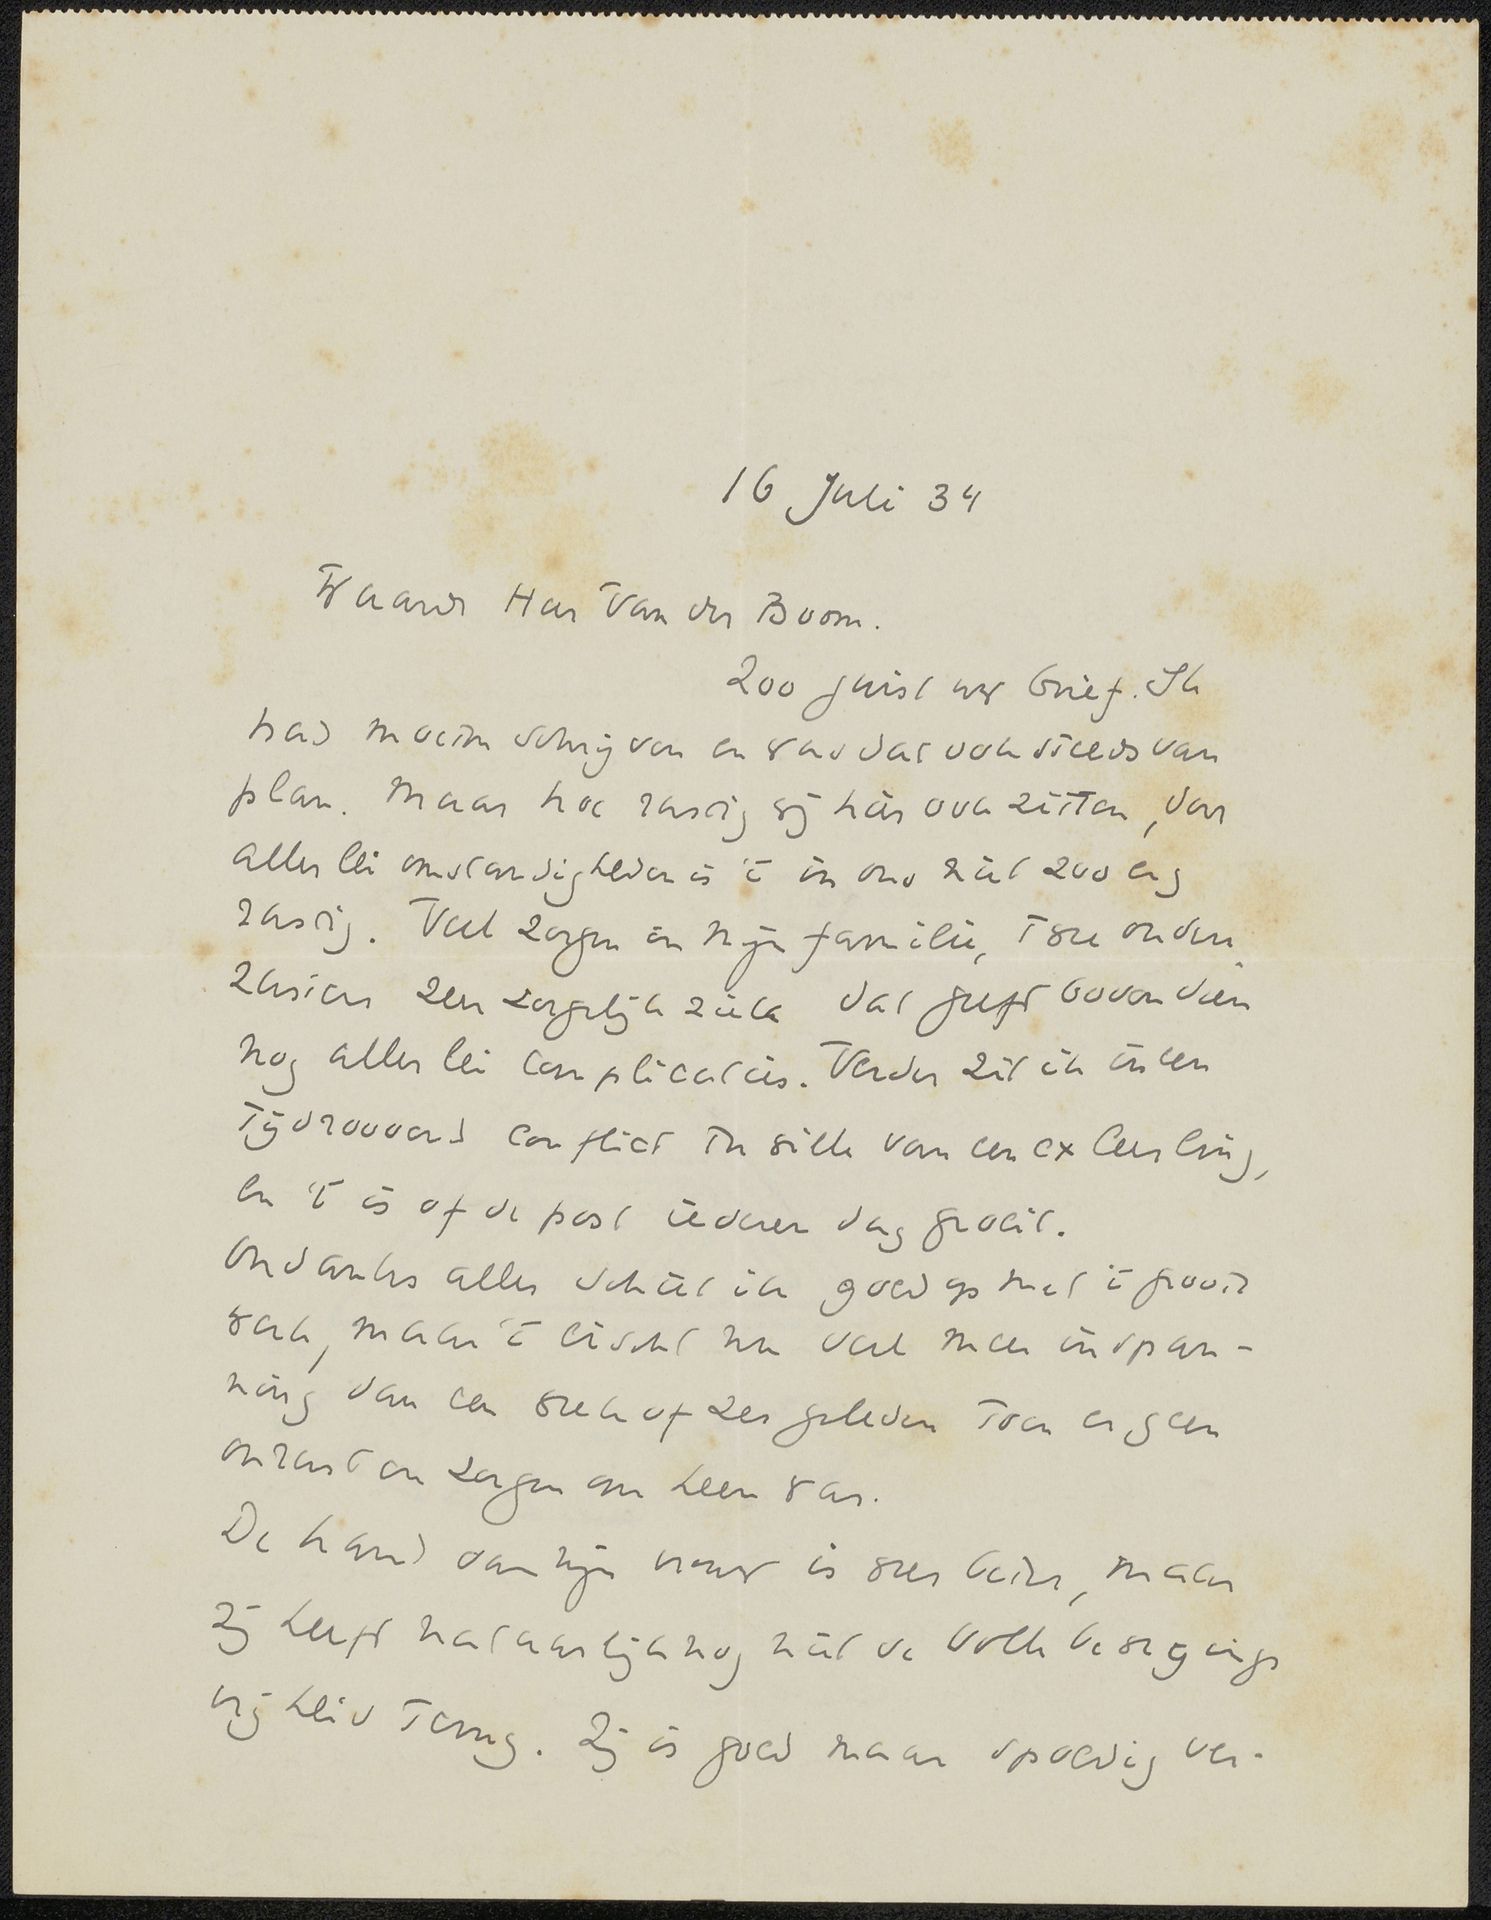 16 Juli 34
Waarde Heer Van der Boom.
Zoo juist uw brief. Ik
had moeten schrijven en was dat ook steeds van
plan. Maar hoe rustig wij hier ook zitten, door
allerlei omstandigheden is 't in ons niet zoo erg
rustig. Veel zorgen in mijn familie, twee onder
zusters zeer zorgelijk ziek dat geeft bovendien
nog allerlei complicaties. Verder zit ik in een
tijdroovend conflict ter wille van een ex leerling,
en 't is of de post iederen dag groeit.
Ondanks alles schiet ik goed op met 't groote
werk, maar 't eischt nu veel meer inspan-
ning dan een week of zes geleden toen er geen
onrust en zorgen om heen was.
De hand van mijn vrouw is weer beter, maar
zij heeft natuurlijk nog niet de volle bewegings
vrijheid terug. Zij is goed maar spoedig ver-